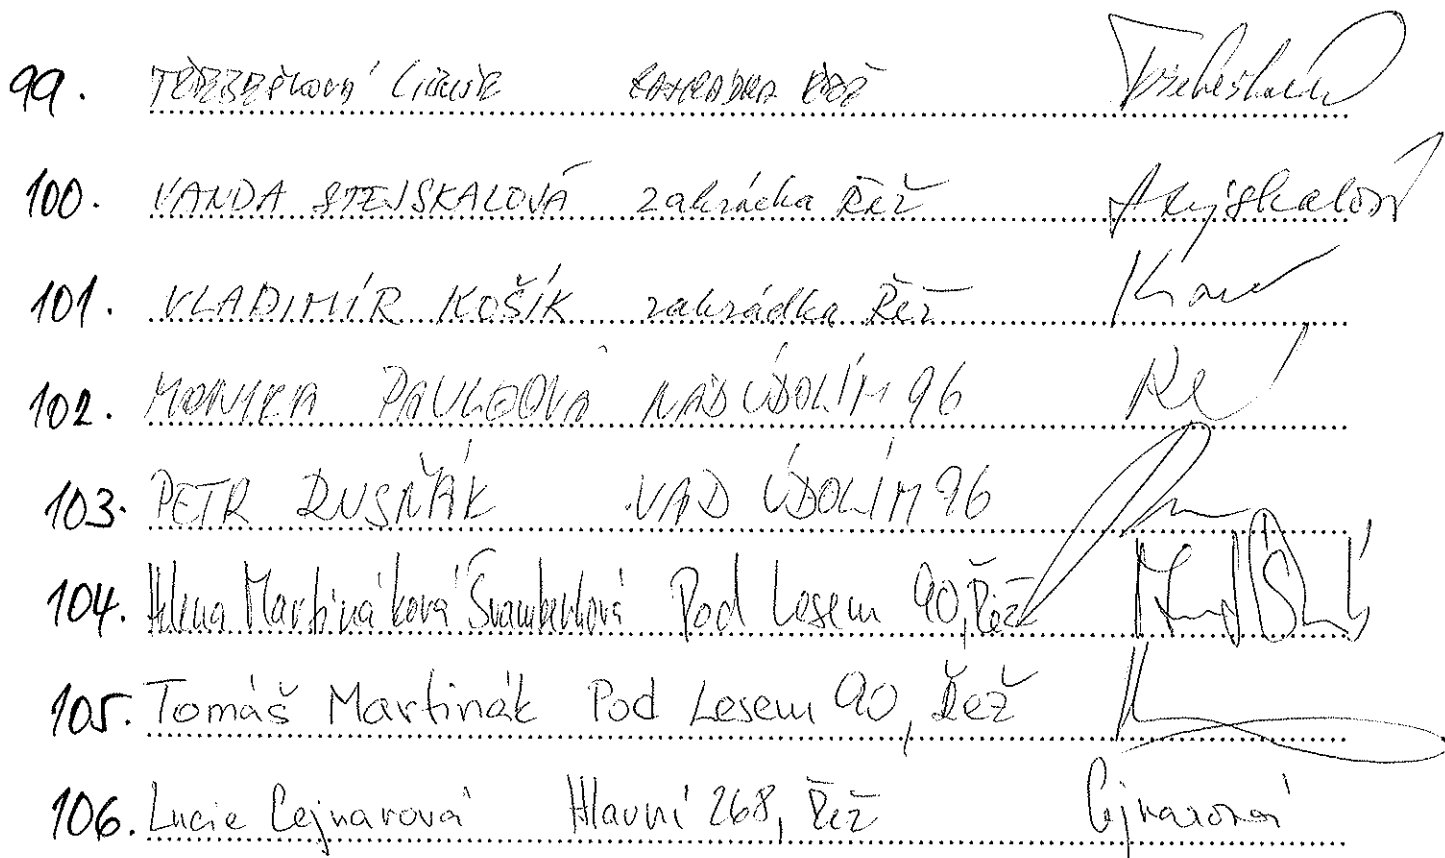 99. ZAHRÁDKA ŘEŽ
100. VANDA STEJSKALOVÁ zahrádka Řež Stejskalová
101. VLADIMÍR KOŠÍK zahrádka Řež
102. MONIKA NAD ÚDOLÍM 96
103. PETR RUSŇÁK NAD ÚDOLÍM 96
104. Helena Martináková Švamberková Pod Lesem 90, Řež
105. Tomáš Martinák Pod Lesem 90, Řež
106. Lucie Cejnarová Hlavní 268, Řež Cejnarová